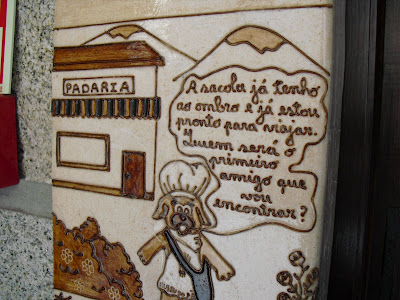 PADARIA
A sacola já tenho
ao ombro e já estou
pronto para viajar.
Quem será o
primeiro
amigo que
vou
encontrar?